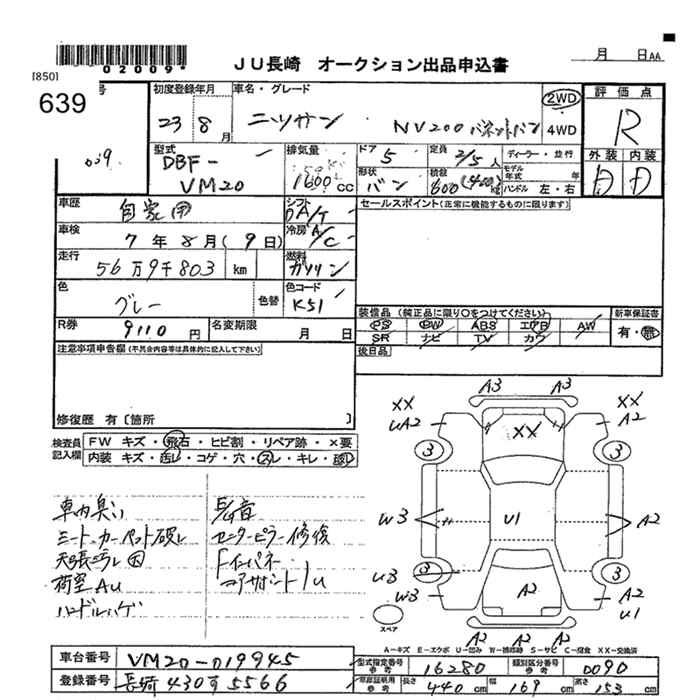 02009
JU長崎 オークション出品申込書
月 日 AA
[850]
639
号
039
初度登録年月
23 8月
車名・グレード
ニッサン NV200 バネットバン
2WD
4WD
評価点
R
型式
DBF-
VM20
排気量
1600 cc
ドア
5
定員
2/5人
ディーラー・並行
形状
バン
積載
600(400)kg
モデル年式 年
ハンドル 左・右
外装 内装
D D
車歴
自家用
シフト
DA/T
セールスポイント(正常に機能するものに限ります)
車検
7年8月(9日)
冷房
A/C
走行
56万9千803 km
燃料
ガソリン
色
グレー
色替
色コード
K51
R券
9110円
名変期限
月 日
装備品(純正品に限り○をつけてください)
新車保証書
PS PW ABS エアB AW
有・無
SR ナビ TV カワ
後日品
注意事項申告欄(不具合内容等は具体的に記入して下さい)
修復歴 有〔箇所 〕
検査員記入欄
FW キズ・飛石・ヒビ割・リペア跡・×要
内装 キズ・汚レ・コゲ・穴・スレ・キレ・破レ
車内臭い
シートカーペット破レ
天張汚レ 凹
荷室AU
ハンドルハゲ
センターピラー修復
FインパネU
コアサポートU
A3 A3
XX XX
UA2 A2
XX
3 3
W3 U1 A2
U3
3 3
W3 A2 A2
U1
A2 A2 A2
スペア
A-キズ E-エクボ U-凹み W-補修跡 S-サビ C-腐食 XX-交換済
車台番号
VM20-019945
型式指定番号 参考
16280
類別区分番号 参考
0090
登録番号
長崎430す5566
車庫証明用 参考
長さ 440 cm
幅 169 cm
高さ 153 cm